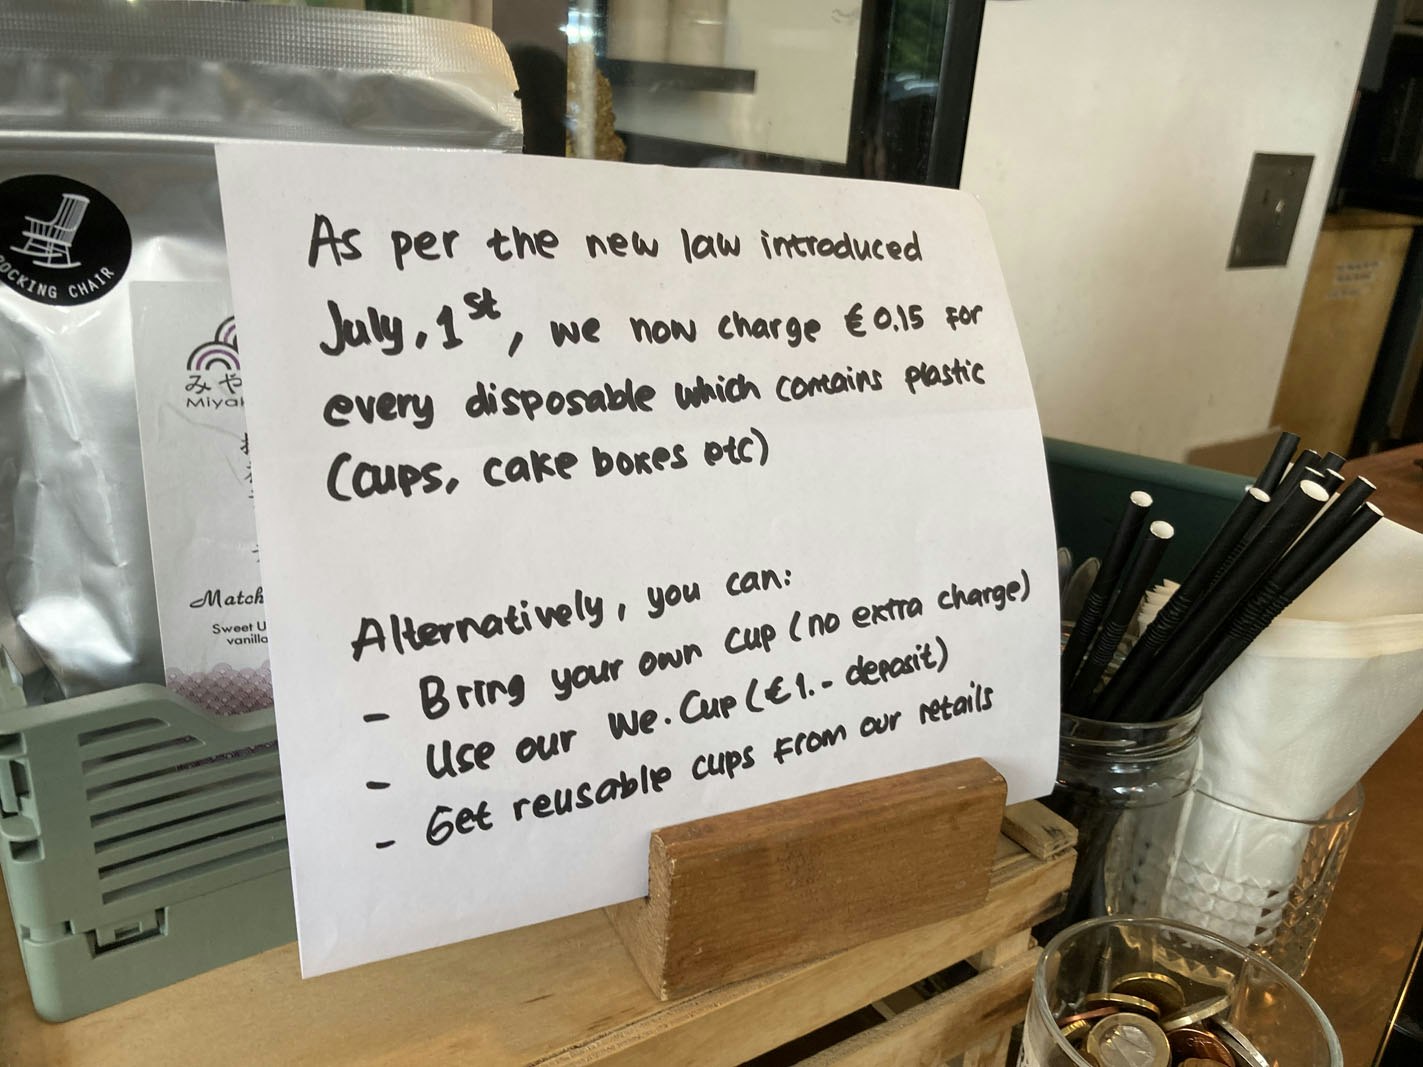 As per the new law introduced
July, 1st, we now charge €0.15 for
every disposable which contains plastic
(cups, cake boxes etc)
Alternatively, you can:
- Bring your own cup (no extra charge)
- Use our We.Cup (€1.- deposit)
- Get reusable cups from our retails
ROCKING CHAIR
みや
Miya
Match
Sweet U
vanilla